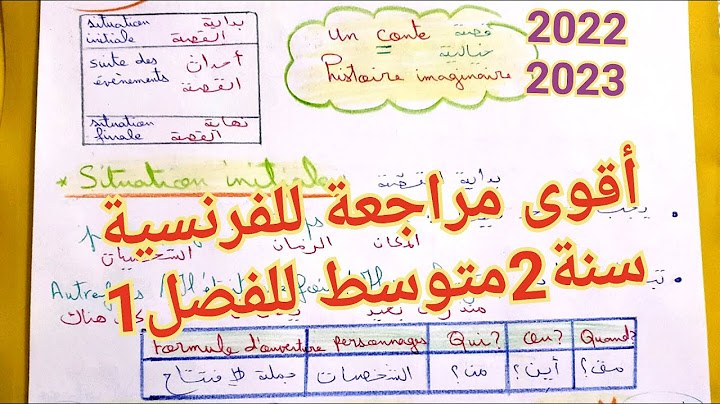 situation initiale
بداية القصة
suite des évènements
أحداث القصة
situation finale
نهاية القصة
un conte قصة
= خيالية
histoire imaginaire
2022
2023
* Situation initiale بداية القصة
أقوى مراجعة للفرنسية
يجب
المكان الزمان الشخصيات
سنة2متوسط للفصل1
Autrefois
هناك
Formule d'ouverture personnages Qui? Où? Quand?
جملة الإفتتاح الشخصيات من؟ أين؟ متى؟